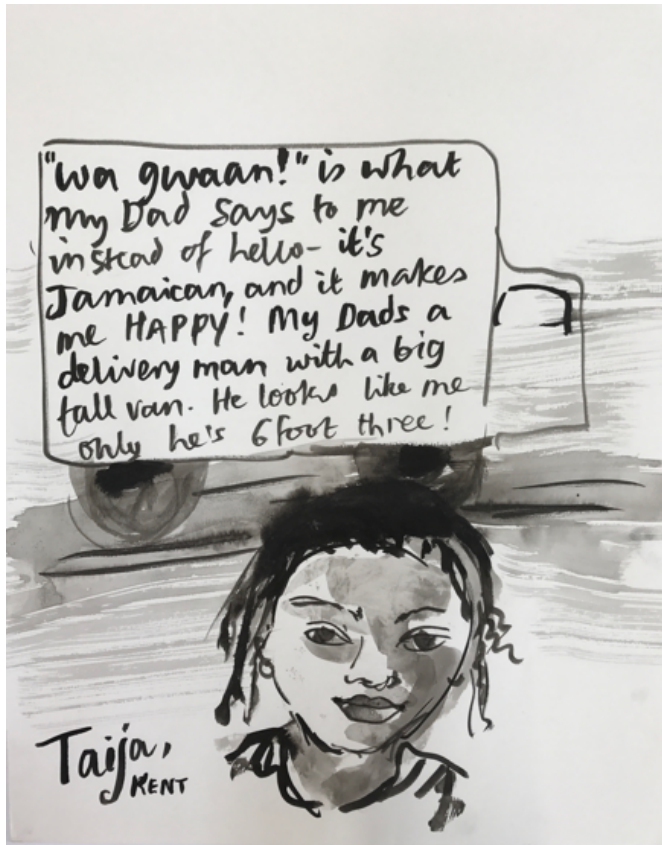 "wa gwaan!" is what
my Dad says to me
instead of hello- it's
Jamaican, and it makes
me HAPPY! My Dads a
delivery man with a big
tall van. He looks like me
only he's 6foot three!
Taija,
KENT